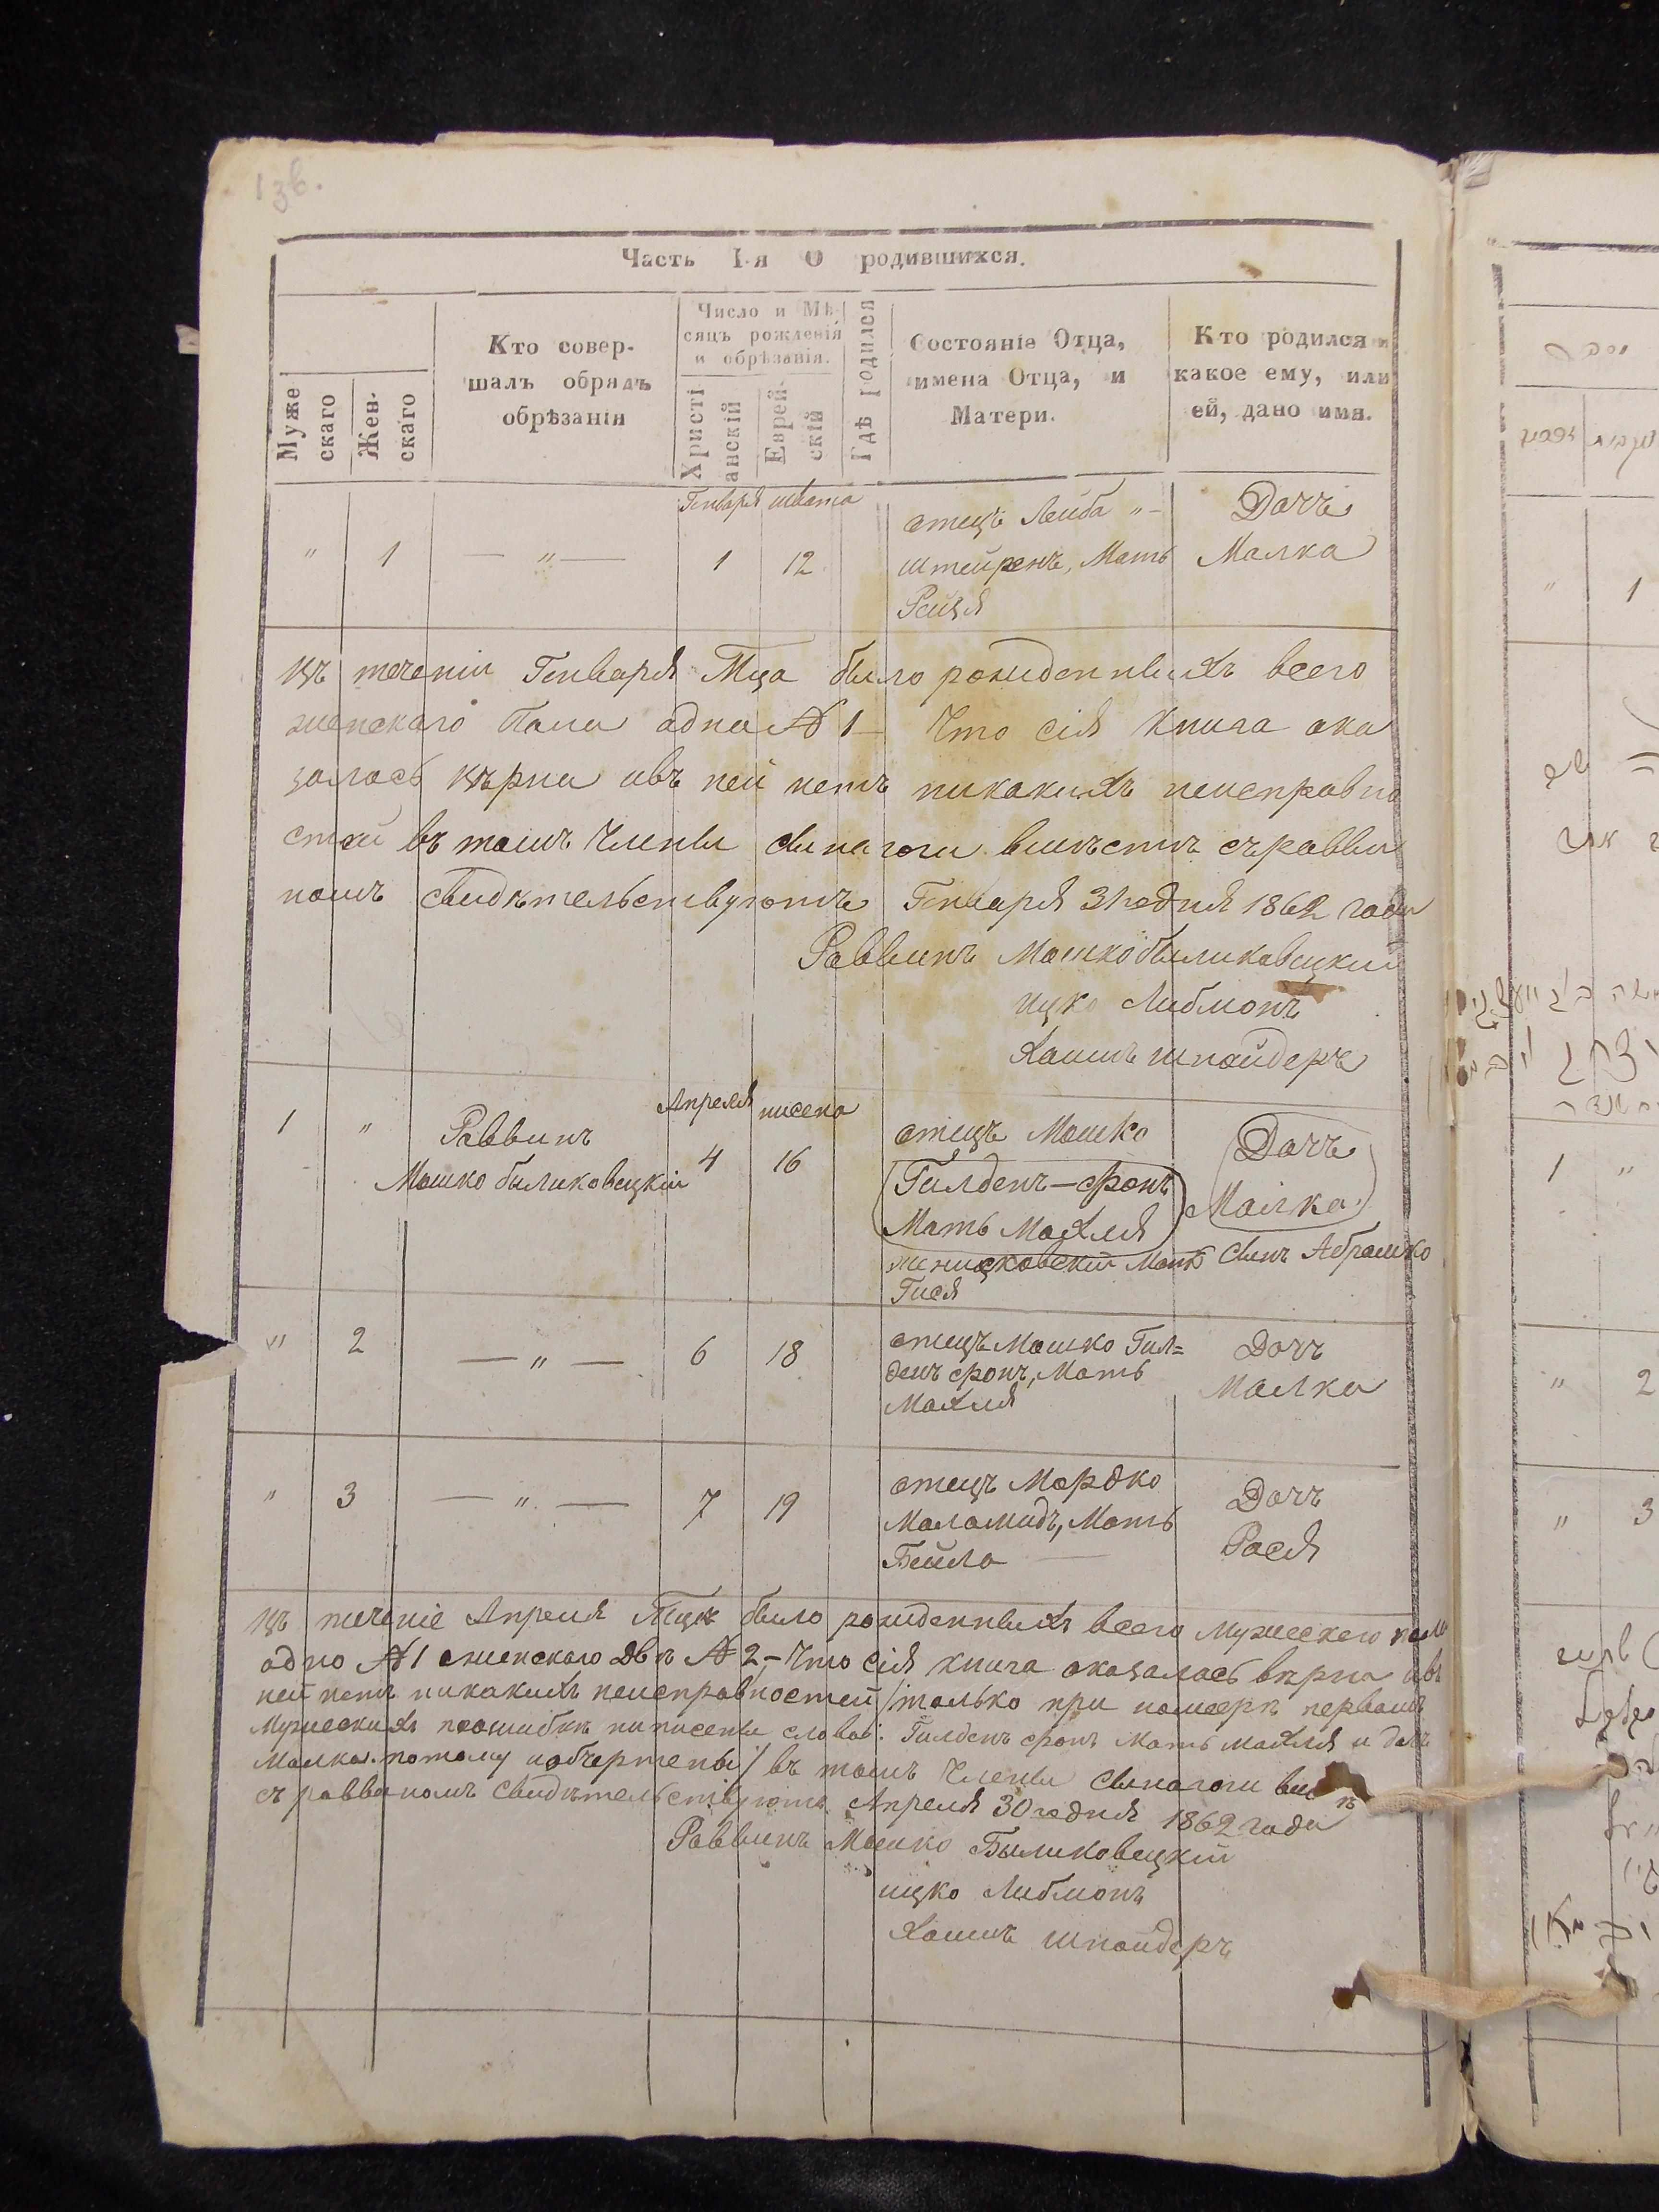 13в.
Часть I-я О родившихся.
Муже
скаго
Жен-
скаго
Кто совер-
шалъ обрядъ
обрѣзанія
Число и Мѣ-
сяцъ рожденія
и обрѣзанія.
Христі
анскій
Еврей-
скій
Гдѣ родился
Состояніе Отца,
имена Отца, и
Матери.
Кто родился и
какое ему, или
ей, дано имя.
Генваря швата
" 1 — " — 1 12
отецъ Лейба "-
штейренъ, Мать
Рейзя
Дочь
Малка
въ теченіи Генваря Мца было рожденныхъ всего
женскаго Пола одна № 1 — Что сія книга ока
залась вѣрна ивъ ней нетъ никакихъ неисправно
стей въ томъ Члены сынагоги вмѣстѣ съравви
номъ свидѣтельствуютъ Генваря 31 годня 1862 года
Раввинъ Мошко Быликовецкій
ицко Либмонъ
Хаимъ шпайдеръ
Апреля нисена
1 " Раввинъ
Мошко быликовецкій
4 16
отецъ Мошко
Гилденъ-фонъ
Мать Махля
Мать
Гися
Дочь
Малка
сынъ Абрамко
" 2 — " — 6 18
отецъ Мошко Гил=
денъ фонъ, Мать
Махля
Дочь
Малка
" 3 — " — 7 19
отецъ Мордко
Маламидъ, Мать
Бейла —
Дочь
Рася
въ теченіе Апреля Мцѣ было рожденныхъ всего Мужескего пола
одно № 1 аженскаго Двѣ № 2 - Что сія книга оказалась вѣрна ивъ
ней нетъ никакихъ неисправностей /только при номерѣ первомъ
Мужескихъ поошибкѣ написены слова: Гилденъ фонъ Мать Махля и дочь
Малка. потому иобчертены/ въ томъ Члены сынагоги
съ раввиномъ свидѣтельствуютъ Апреля 30 годня 1862 года
Раввинъ Мошко Быликовецкій
ицко Либмонъ
Хаимъ шпайдеръ
1
1 "
" 2
" 3